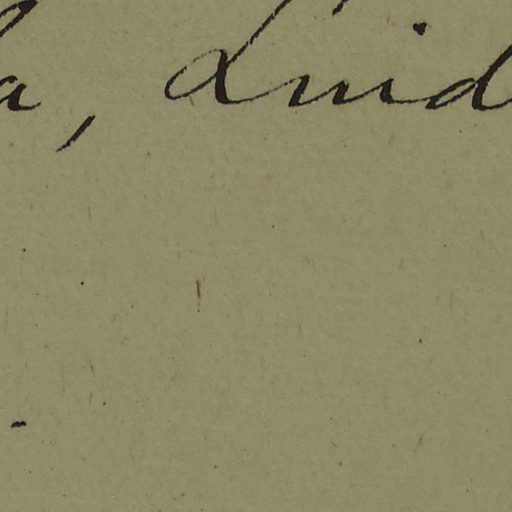 a, Luid